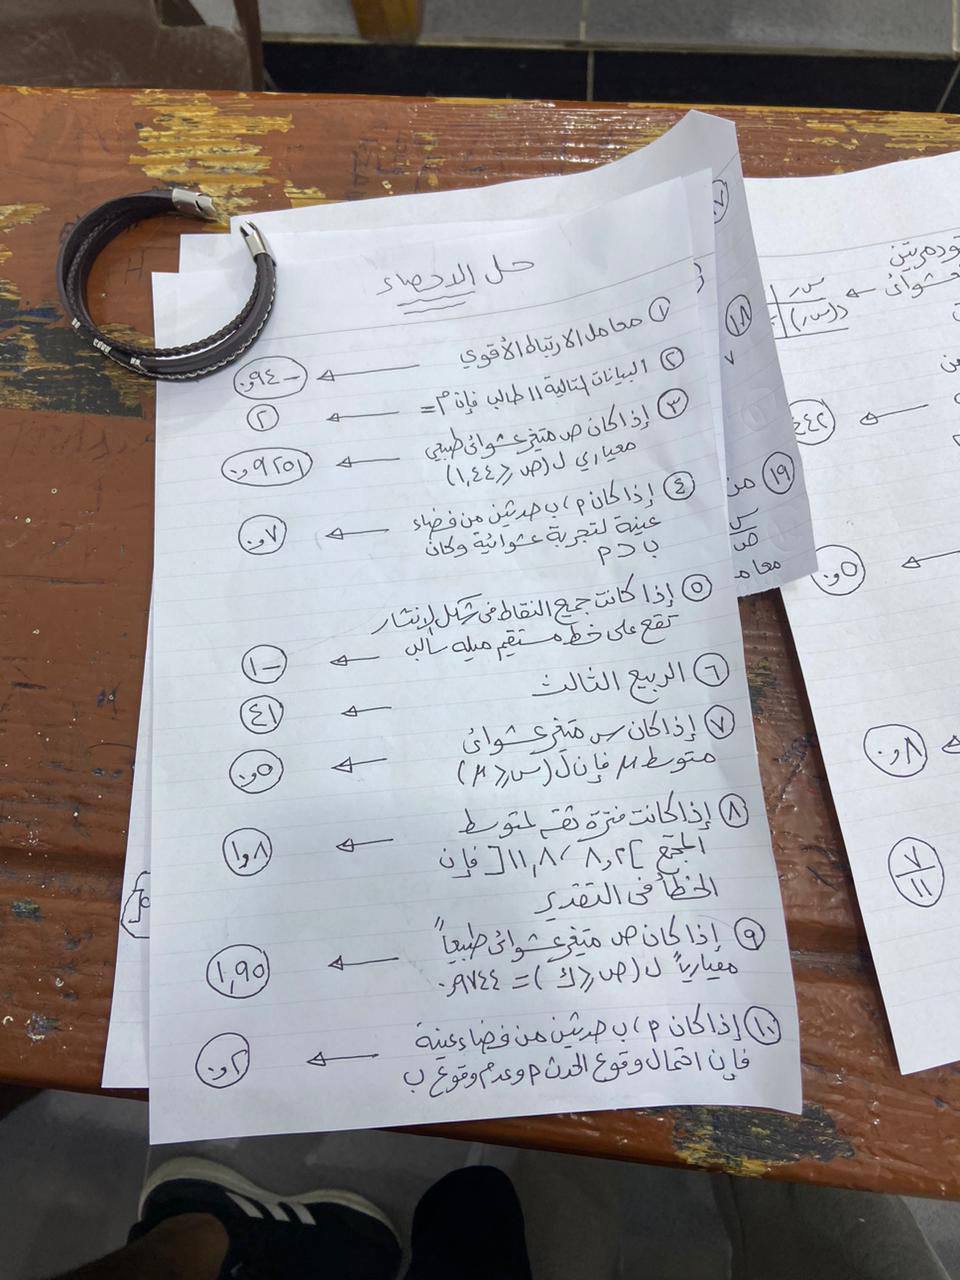 حل الاحصاء
① معامل الارتباط الأقوي ← -٩٤و٠
② البيانات التالية ١١ طالب فإن م = ← ٢
③ إذا كان ص متغير عشوائى طبيعي
معياري ل(ص ≤ ١,٤٤) ← ٩٢٥١و٠
④ إذا كان م، ب حدثين من فضاء
عينة لتجربة عشوائية وكان ← ٧و٠
ب ⊂ م
⑤ إذا كانت جميع النقاط فى شكل الإنتشار
تقع على خط مستقيم ميله سالب ← -١
⑥ الربيع الثالث ← ٤١
⑦ إذا كان س متغير عشوائى
متوسط μ فإن ل(س ≤ μ) ← ٥و٠
⑧ إذا كانت فترة ثقه لمتوسط
المجتمع ]٨,٢، ١١,٨[ فإن ← ٨و١
الخطأ فى التقدير
⑨ إذا كان ص متغير عشوائى طبيعاً
معيارياً ل(ص ≤ ك) = ٩٧٤٤و٠ ← ١,٩٥
⑩ إذا كان م، ب حدثين من فضاء عينة
فإن احتمال وقوع الحدث م وعدم وقوع ب ← ٢و٠
⑱
٧
⑲ من
س
ص
معام
س ر
د(س ر)
٤٤٢
٥و٠
٨و٠
٧
١١